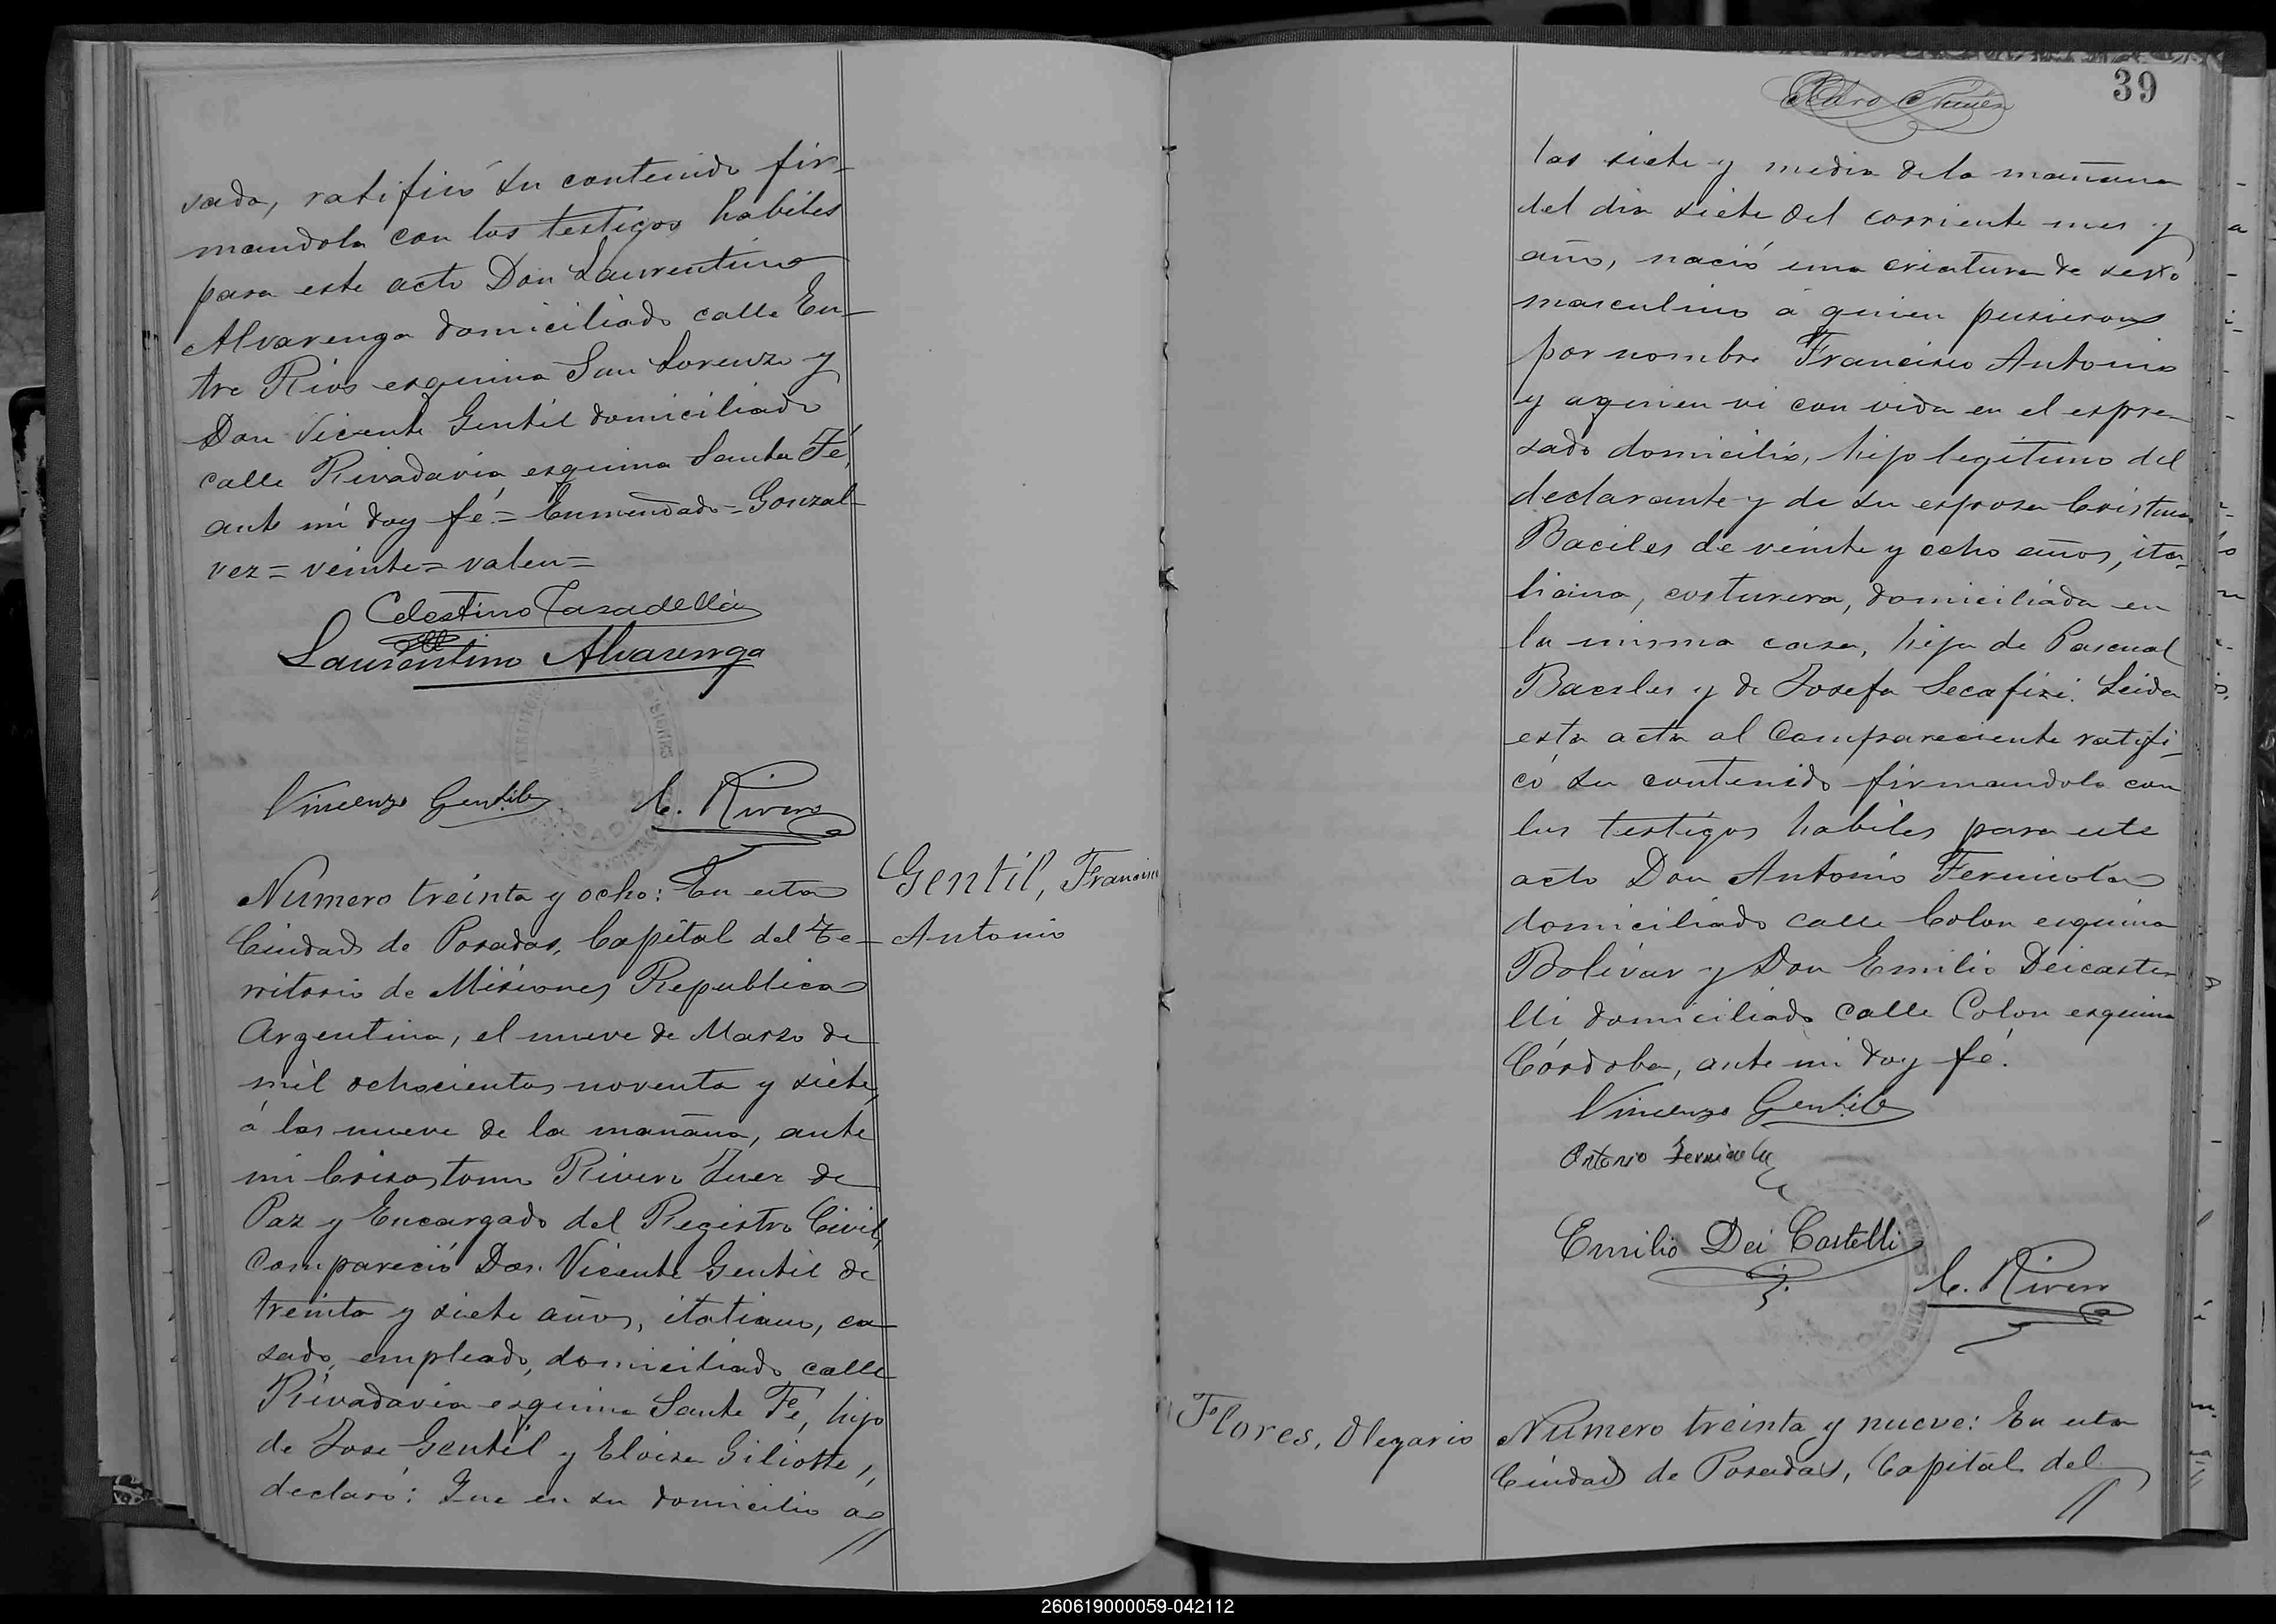 sada, ratificó su contenido fir-
mandola con los testigos habiles
para este acto Don Laurentino
Alvarenga domiciliado calle En-
tre Rios esquina San Lorenzo y
Don Vicente Gentil domiciliado
calle Rivadavia esquina Santa Fé,
ante mi doy fé.= Enmendado = Gonzal-
vez = veinte = valen =
Celestino
Laurentino Alvarenga
Vincenzo Gentile C. Rivero
Numero treinta y ocho: En esta
Ciudad de Posadas, Capital del Te-
rritorio de Misiones Republica
Argentina, el nueve de Marzo de
mil ochocientos noventa y siete,
á las nueve de la mañana, ante
mi Crisostomo Rivero Juez de
Paz y Encargado del Registro Civil,
compareció Don Vicente Gentil de
treinta y siete años, italiano, ca-
sado, empleado, domiciliado calle
Rivadavia esquina Santa Fé, hijo
de Jose Gentil y Eloisa Giliotte,
declaró: Que en su domicilio á
Gentil, Francisco
Antonio
39
las siete y media de la mañana
del dia siete del corriente mes y
año, nació una criatura de sexo
masculino á quien pusieron
por nombre Francisco Antonio
y aquien vi con vida en el espre-
sado domicilio, hijo legitimo del
declarante y de su esposa Cristina
Baciles de veinte y ocho años, ita-
liana, costurera, domiciliada en
la misma casa, hija de Pascual
Baciles y de Josefa Secafixi. Leida
esta acta al Compareciente ratifi-
có su contenido firmandola con
los testigos habiles para este
acto Don Antonio Fernicola
domiciliado calle Colon esquina
Bolívar y Don Emilio Deicaste-
lli domiciliado calle Colon esquina
Córdoba, ante mi doy fé.
Vincenzo Gentile
Antonio Fernicola
Emilio Dei Castelli
C. Rivero
Flores, Olegario
Numero treinta y nueve: En esta
Ciudad de Posadas, Capital del
260619000059-042112